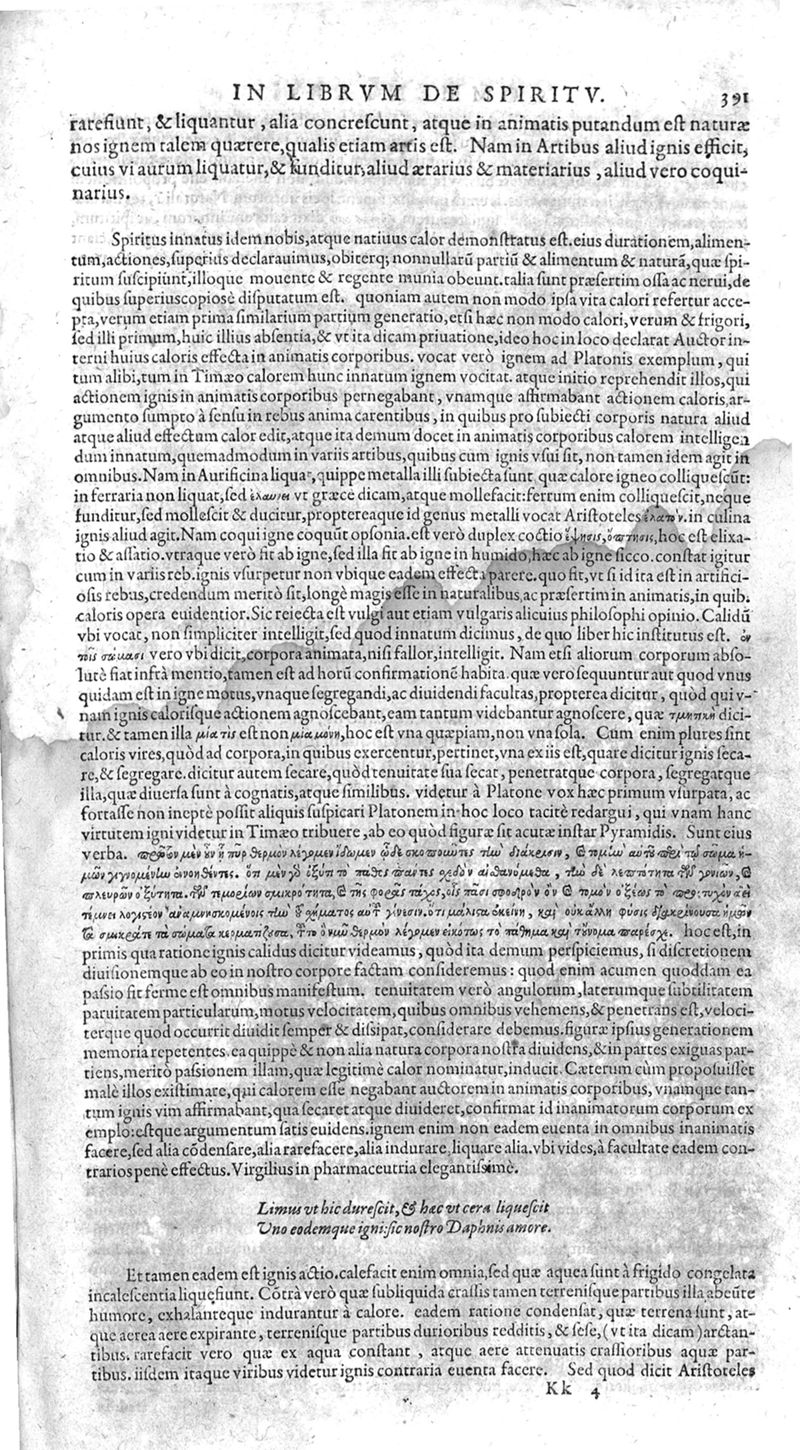 IN LIBRVM DE SPIRITV. 391
rarefiunt, & liquantur, alia concrescunt, atque in animatis putandum est naturæ
nos ignem talem quærere, qualis etiam artis est. Nam in Artibus aliud ignis efficit,
cuius vi aurum liquatur, & funditur, aliud ærarius & materiarius, aliud vero coqui-
narius.
Spiritus innatus idem nobis, atque natiuus calor demonſtratus eſt. eius durationem, alimen-
tum, actiones, ſuperius declarauimus, obiterq; nonnullarũ partiũ & alimentum & naturã, quæ ſpi-
ritum ſuſcipiũt, illoque mouente & regente munia obeunt. talia ſunt præſertim oſſa ac nerui, de
quibus ſuperius copiosè diſputatum eſt. quoniam autem non modo ipſa vita calori refertur acce-
pta, verum etiam prima ſimilarium partium generatio, etſi hæc non modo calori, verum & frigori,
ſed illi primum, huic illius abſentia, & vt ita dicam priuatione, ideo hoc in loco declarat Auctor in-
terni huius caloris effecta in animatis corporibus. vocat verò ignem ad Platonis exemplum, qui
tum alibi, tum in Timæo calorem hunc innatum ignem vocitat. atque initio reprehendit illos, qui
actionem ignis in animatis corporibus pernegabant, vnamque affirmabant actionem caloris, ar-
gumento ſumpto à ſenſu in rebus anima carentibus, in quibus pro ſubiecti corporis natura aliud
atque aliud effectum calor edit, atque ita demum docet in animatis corporibus calorem intelligen
dum innatum, quemadmodum in variis artibus, quibus cum ignis vſui ſit, non tamen idem agit in
omnibus. Nam in Aurificina liquat, quippe metalla illi ſubiecta ſunt quæ calore igneo colliqueſcũt:
in ferraria non liquat, ſed ἐλαύνει vt græcè dicam, atque mollefacit: ferrum enim colliqueſcit, neque
funditur, ſed molleſcit & ducitur, proptereaque id genus metalli vocat Ariſtoteles ἐλατὸν. in culina
ignis aliud agit. Nam coqui igne coquũt opſonia. eſt verò duplex coctio ἕψησις, ὄπτησις, hoc eſt elixa-
tio & aſſatio. vtraque verò fit ab igne, ſed illa fit ab igne in humido, hæc ab igne ſicco. conſtat igitur
cum in variis reb. ignis vſurpetur non vbique eadem effecta parere. quo fit, vt ſi id ita eſt in artifici-
oſis rebus, credendum meritò ſit, longè magis eſſe in naturalibus, ac præſertim in animatis, in quib.
caloris opera euidentior. Sic reiecta eſt vulgi aut etiam vulgaris alicuius philoſophi opinio. Calidũ
vbi vocat, non ſimpliciter intelligit, ſed quod innatum dicimus, de quo liber hic inſtitutus eſt. ἐν
τοῖς σώμασι vero vbi dicit, corpora animata, niſi fallor, intelligit. Nam etſi aliorum corporum abſo-
lutè fiat infrà mentio, tamen eſt ad horũ confirmationẽ habita. quæ vero ſequuntur aut quod vnus
quidam eſt in igne motus, vnaque ſegregandi, ac diuidendi facultas, propterea dicitur, quòd qui v-
nam ignis caloriſque actionem agnoſcebant, eam tantum videbantur agnoſcere, quæ τμητικὴ dici-
tur. & tamen illa μία τις eſt non μία μόνη, hoc eſt vna quæpiam, non vna ſola. Cùm enim plures ſint
caloris vires, quòd ad corpora, in quibus exercentur, pertinet, vna ex iis eſt, quare dicitur ignis ſeca-
re, & ſegregare. dicitur autem ſecare, quòd tenuitate ſua ſecat, penetratque corpora, ſegregatque
illa, quæ diuerſa ſunt à cognatis, atque ſimilibus. videtur à Platone vox hæc primum vſurpata, ac
fortaſſe non ineptè poſſit aliquis ſuſpicari Platonem in hoc loco tacitè redargui, qui vnam hanc
virtutem igni videtur in Timæo tribuere, ab eo quòd figuræ ſit acutæ inſtar Pyramidis. Sunt eius
verba. πρῶτον μὲν οὖν ᾗ πῦρ θερμὸν λέγομεν ἴδωμεν ὧδε σκοποῦντες τὴν διάκρισιν, & τομὴν αὐτοῦ περὶ τὸ σῶμα ἡ-
μῶν γιγνομένην ἐννοηθέντες. ὅτι μὲν γὸ ὀξύ τι τὸ πάθος πάντες σχεδὸν αἰσθανόμεθα, τὴν δὲ λεπτότητα τῶν γωνιῶν, &
πλευρῶν ὀξύτητα, τῶν τε μορίων σμικρότητα, & τῆς φορᾶς τάχος, οἷς πᾶσι σφοδρὸν ὂν & τομὸν ὀξέως τὸ προστυχὸν ἀεὶ
τέμνει λογιστέον ἀναμνησκομένοις τὴν τοῦ σχήματος αὐτοῦ γένεσιν. ὅτι μάλιστα ἐκείνη, καὶ οὐκ ἄλλη φύσις διακρίνουσα ἡμῶν
τὰ σμικρά τε τὰ σώματα κερματίζουσα, τοῦτο ὃ νῦν θερμὸν λέγομεν εἰκότως τὸ πάθημα καὶ τοὔνομα παρέσχε. hoc eſt, in
primis qua ratione ignis calidus dicitur videamus, quòd ita demum perſpiciemus, ſi diſcretionem
diuiſionemque ab eo in noſtro corpore factam conſideremus: quod enim acumen quoddam ea
paſsio fit ferme eſt omnibus manifeſtum. tenuitatem verò angulorum, laterumque ſubtilitatem
paruitatem particularum, motus velocitatem, quibus omnibus vehemens, & penetrans eſt, veloci-
terque quod occurrit diuidit ſemper & diſsipat, conſiderare debemus. figuræ ipſius generationem
memoria repetentes. ea quippè & non alia natura corpora noſtra diuidens, & in partes exiguas par-
tiens, meritò paſsionem illam, quæ legitimè calor nominatur, inducit. Cæterum cùm propoſuiſſet
malè illos exiſtimare, qui calorem eſſe negabant auctorem in animatis corporibus, vnamque tan-
tum ignis vim affirmabant, qua ſecaret atque diuideret, confirmat id inanimatorum corporum ex
emplo: eſtque argumentum ſatis euidens. ignem enim non eadem euenta in omnibus inanimatis
facere, ſed alia cõdenſare, alia rarefacere, alia indurare, liquare alia. vbi vides, à facultate eadem con-
trarios penè effectus. Virgilius in pharmaceutria elegantiſsimè.
Limus vt hic dureſcit, & hæc vt cera liqueſcit
Uno eodemque igni: ſic noſtro Daphnis amore.
Et tamen eadem eſt ignis actio. calefacit enim omnia, ſed quæ aquea ſunt à frigido congelata
incaleſcentia liquefiunt. Cõtrà verò quæ ſubliquida craſsis tamen terreniſque partibus illa abeũte
humore, exhalanteque indurantur à calore. eadem ratione condenſat, quæ terrena ſunt, at-
que aerea aere expirante, terreniſque partibus durioribus redditis, & ſeſe, (vt ita dicam) arctan-
tibus. rarefacit vero quæ ex aqua conſtant, atque aere attenuatis craſsioribus aquæ par-
tibus. iiſdem itaque viribus videtur ignis contraria euenta facere. Sed quod dicit Ariſtoteles
Kk 4